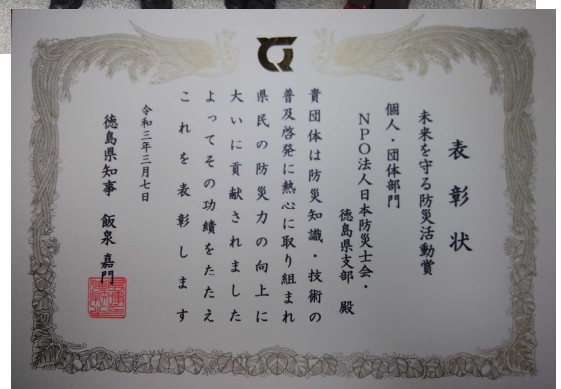 表彰状
未来を守る防災活動賞
個人・団体部門
NPO法人日本防災士会・
徳島県支部 殿
貴団体は防災知識・技術の
普及啓発に熱心に取り組まれ
県民の防災力の向上に
大いに貢献されました
よってその功績をたたえ
これを表彰します
令和三年三月七日
徳島県知事 飯泉 嘉門